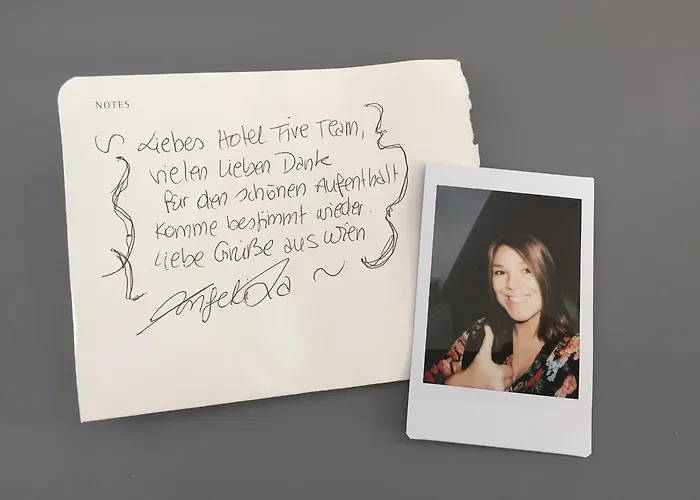 NOTES
Liebes Hotel Five Team,
vielen lieben Dank
für den schönen Aufenthalt
Komme bestimmt wieder.
Liebe Grüße aus Wien
Angela